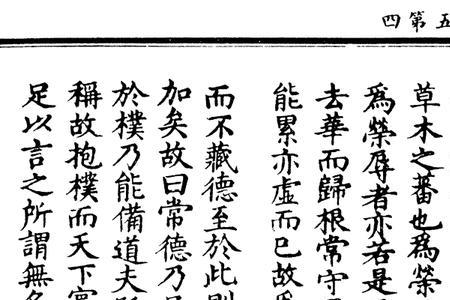 五第四
草木之蕃也為榮
為榮辱者亦若是
去華而歸根常守
能累亦虛而已故
而不藏德至於此則
加矣故曰常德乃
於樸乃能備道夫
稱故抱樸而天下
足以言之所謂無